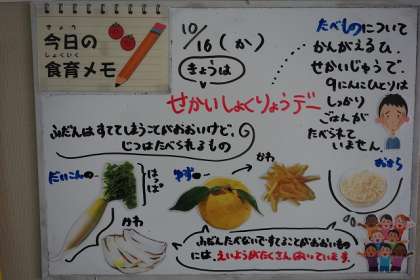 きょう
今日の
しょくいく
食育メモ
10/16(か)
きょうは
せかいしょくりょうデー
たべものについて
かんがえるひ。
せかいじゅうで、
9にんにひとりは
しっかり
ごはんが
たべられて
いません。
ふだんは、すててしまうことがおおいけど、
じつはたべられるもの
だいこんの
はっぱ
かわ
ゆず
かわ
おから
ふだんたべないですてることがおおいもの
には、えいようがたくさんはいっています。